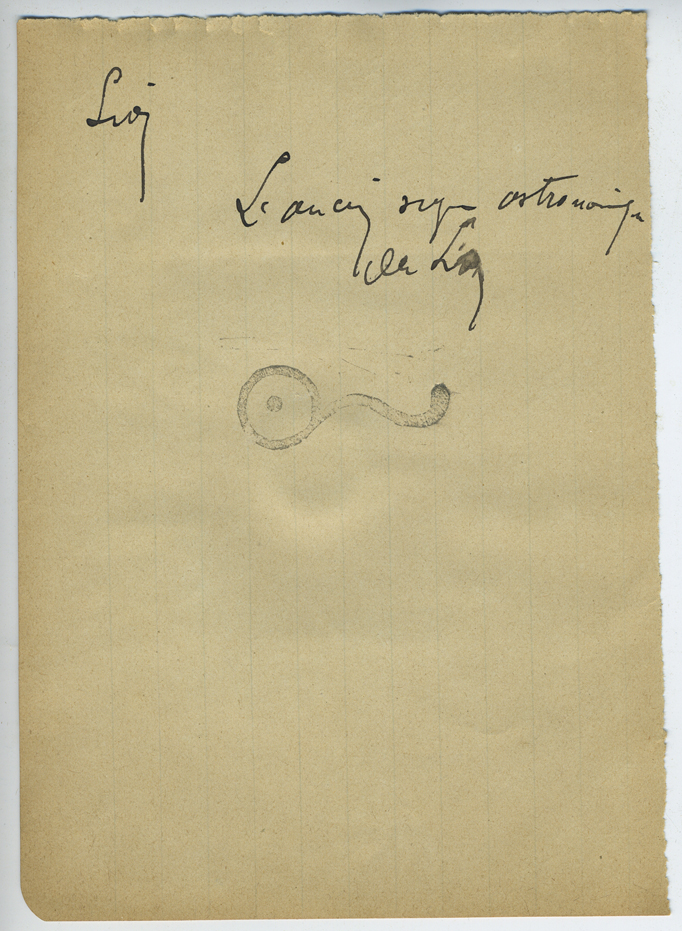 Lion
Le ancien signe astronomique
de Lion